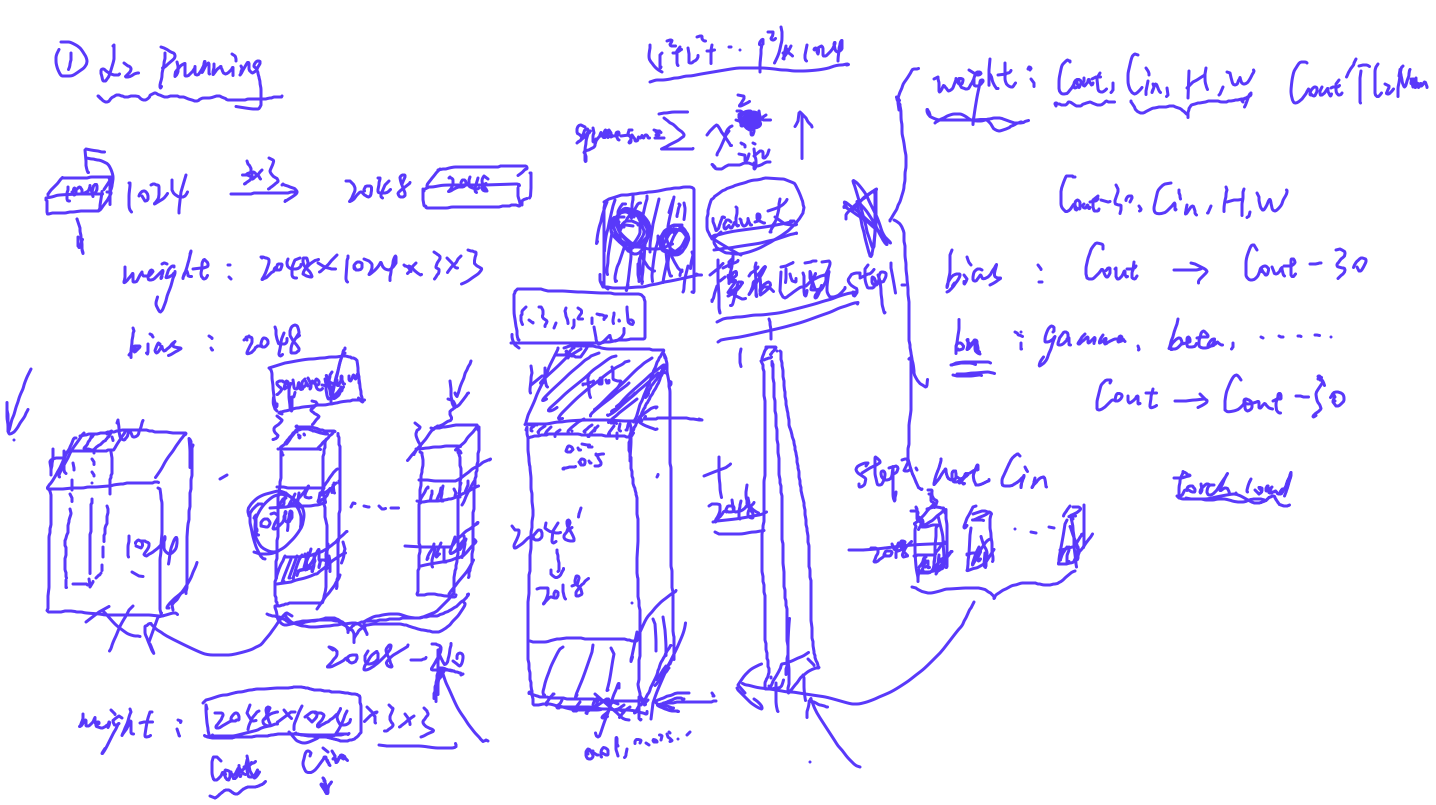 ① L2 Prunning
1024 3×3 → 2048 2048
weight : 2048×1024×3×3
bias : 2048
square sum
1024
1024
2048-30
weight : 2048×1024×3×3
Cout Cin
(1²+1²+...1²)×1024
square sum = Σ X² ↑
value大
模板匹配
1.3, 1.2, -1.6
+0.5
0.5
-0.5
2048
↓
2018
+
2048
step1.
weight : Cout, Cin, H, W
Cout-30, Cin, H, W
bias : Cout → Cout-30
bn : gamma, beta, ......
Cout → Cout-30
step2. next Cin
torch load
2048